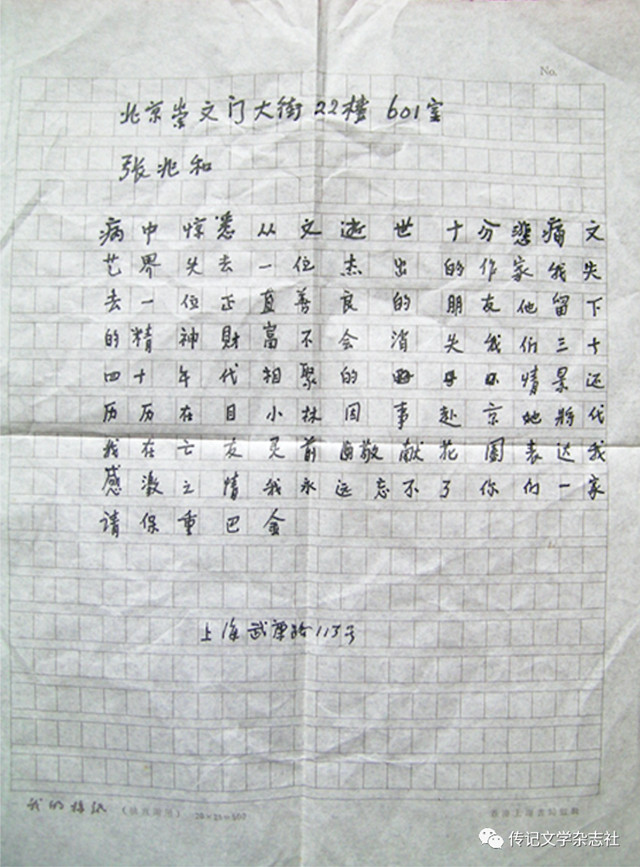 No.
北京崇文门大街22楼 601室
张兆和
病中惊悉从文逝世十分悲痛文
艺界失去一位杰出的作家我失
去一位正直善良的朋友他留下
的精神财富不会消失我们三十
四十年代相聚的情景还
历历在目小林因事赴京她将代
我在亡友灵前敬献花圈表达我
感激之情我永远忘不了你们一家
请保重巴金
上海武康路113号
我的稿纸
20×25=500
传记文学杂志社